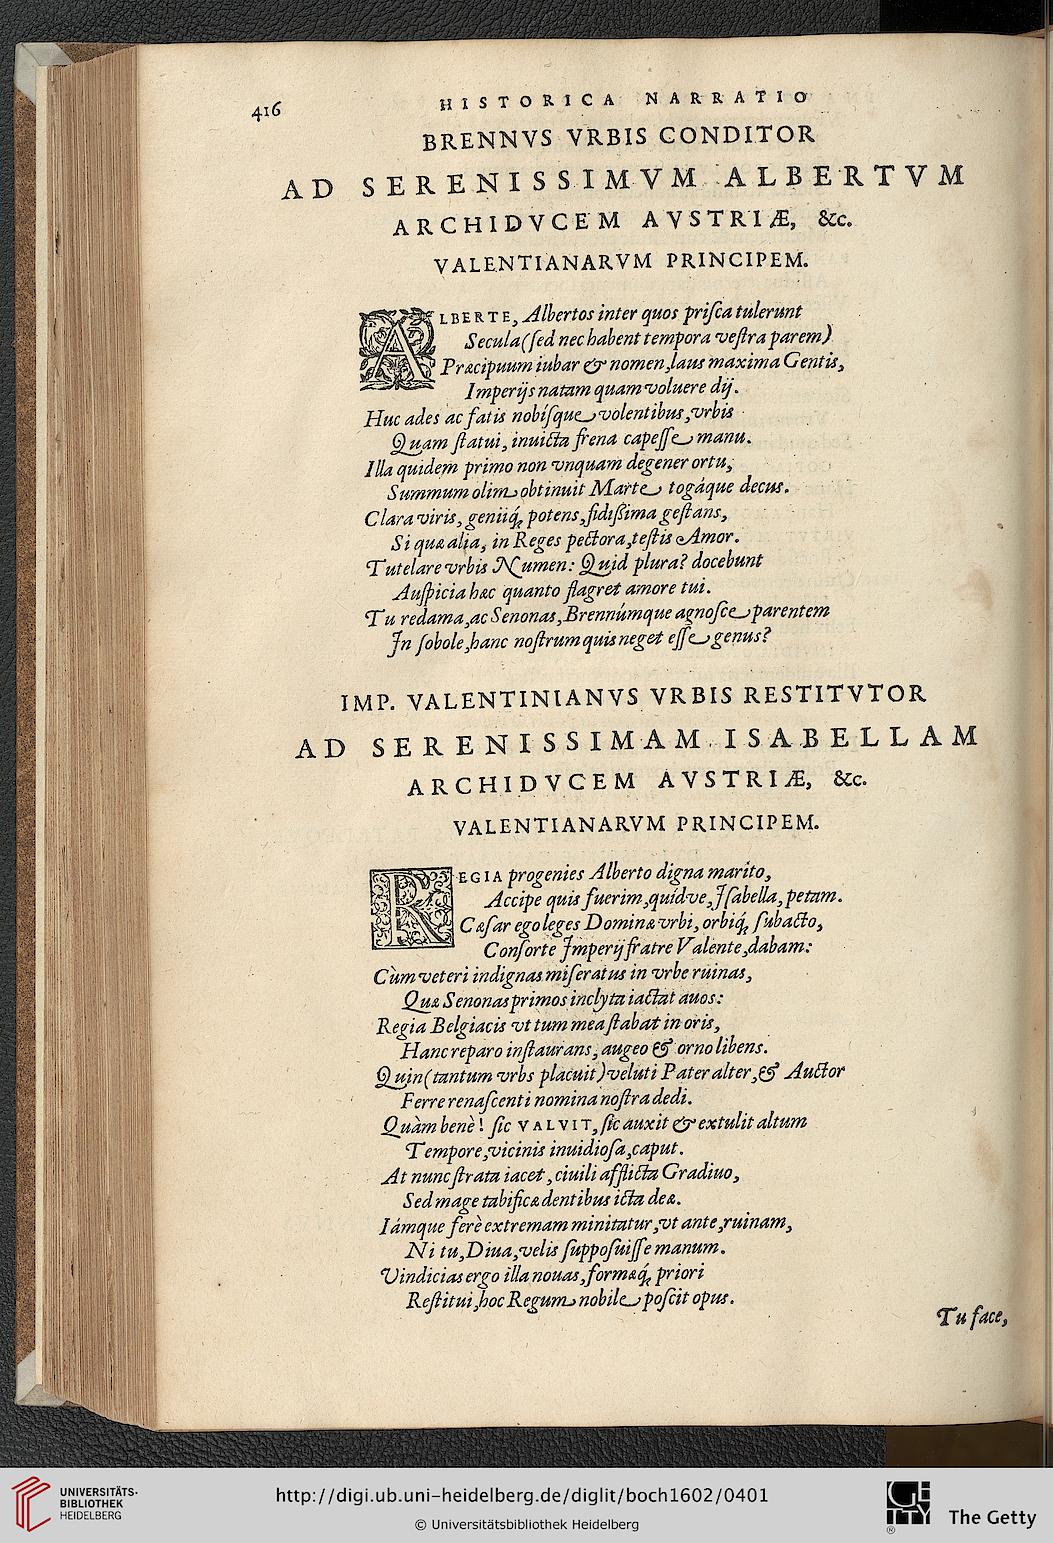 416
HISTORICA NARRATIO
BRENNVS VRBIS CONDITOR
AD SERENISSIMVM ALBERTVM
ARCHIDVCEM AVSTRIÆ, &c.
VALENTIANARVM PRINCIPEM.
ALBERTE, Albertos inter quos priſca tulerunt
Secula (ſed nec habent tempora veſtra parem)
Præcipuum iubar & nomen, laus maxima Gentis,
Imperijs natam quam voluere dij.
Huc ades ac fatis nobíſque volentibus, vrbis
Quam ſtatui, inuicta frena capeſſe manu.
Illa quidem primo non vnquam degener ortu,
Summum olim obtinuit Marte togáque decus.
Clara viris, geniíq́; potens, fidißima geſtans,
Si qua alia, in Reges pectora, teſtis Amor.
Tutelare vrbis Numen: Quid plura? docebunt
Auſpicia hæc quanto flagret amore tui.
Tu redama, ac Senonas, Brennúmque agnoſce parentem
In ſobole, hanc noſtrum quis neget eſſe genus?
IMP. VALENTINIANVS VRBIS RESTITVTOR
AD SERENISSIMAM ISABELLAM
ARCHIDVCEM AVSTRIÆ, &c.
VALENTIANARVM PRINCIPEM.
REGIA progenies Alberto digna marito,
Accipe quis fuerim, quidve, Iſabella, petam.
Cæſar ego leges Dominæ vrbi, orbiq́; ſubacto,
Conſorte Imperij fratre Valente, dabam:
Cùm veteri indignas miſeratus in vrbe ruinas,
Quæ Senonas primos inclyta iactat auos:
Regia Belgiacis vt tum mea ſtabat in oris,
Hanc reparo inſtaurans, augeo & orno libens.
Quin (tantum vrbs placuit) veluti Pater alter, & Auctor
Ferre renaſcenti nomina noſtra dedi.
Quàm benè! ſic VALVIT, ſic auxit & extulit altum
Tempore, vicinis inuidioſa, caput.
At nunc ſtrata iacet, ciuili afflicta Gradiuo,
Sed mage tabificæ dentibus icta deæ.
Iámque ferè extremam minitatur, vt ante, ruinam,
Ni tu, Diua, velis ſuppoſuiſſe manum.
Vindicias ergo illa nouas, formæq́; priori
Reſtitui, hoc Regum nobile poſcit opus.
Tu face,
UNIVERSITÄTS-
BIBLIOTHEK
HEIDELBERG
http://digi.ub.uni-heidelberg.de/diglit/boch1602/0401
© Universitätsbibliothek Heidelberg
GETTY
®
The Getty